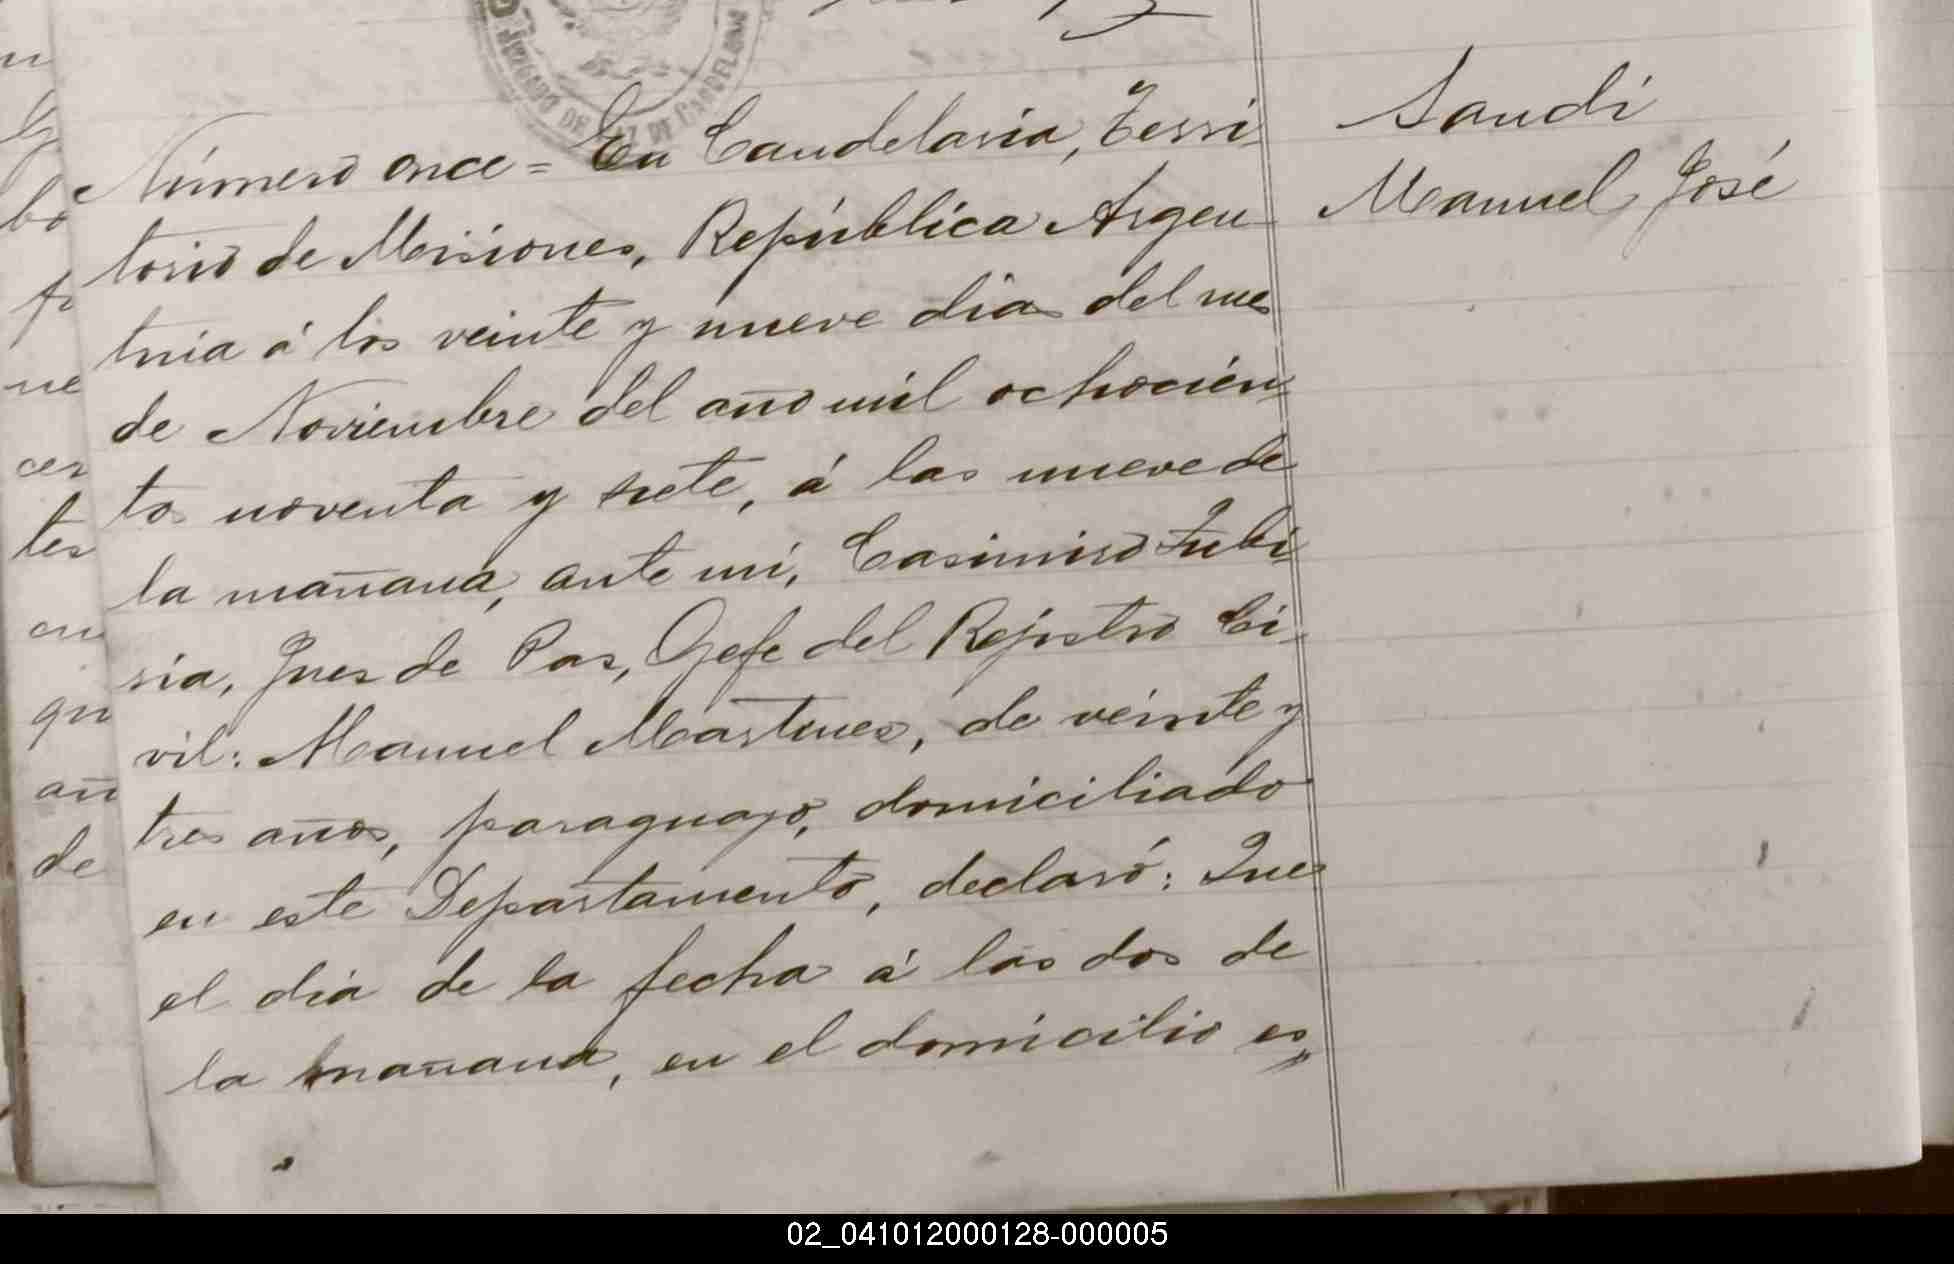 JUZGADO DE PAZ DE CANDELARIA
Número once = En Candelaria, Terri-
torio de Misiones, República Argen-
tina á los veinte y nueve dias del mes
de Noviembre del año mil ochocien-
tos noventa y siete, á las nueve de
la mañana, ante mi, Casimiro Zubi-
ria, Jues de Pas, Gefe del Rejistro Ci-
vil: Manuel Martines, de veinte y
tres años, paraguayo, domiciliado
en este Departamento, declaró: Que
el dia de la fecha á las dos de
la mañana, en el domicilio es,,
Sandi
Manuel José
bo
ne
cer
tes
en
qu
añ
de
02_041012000128-000005